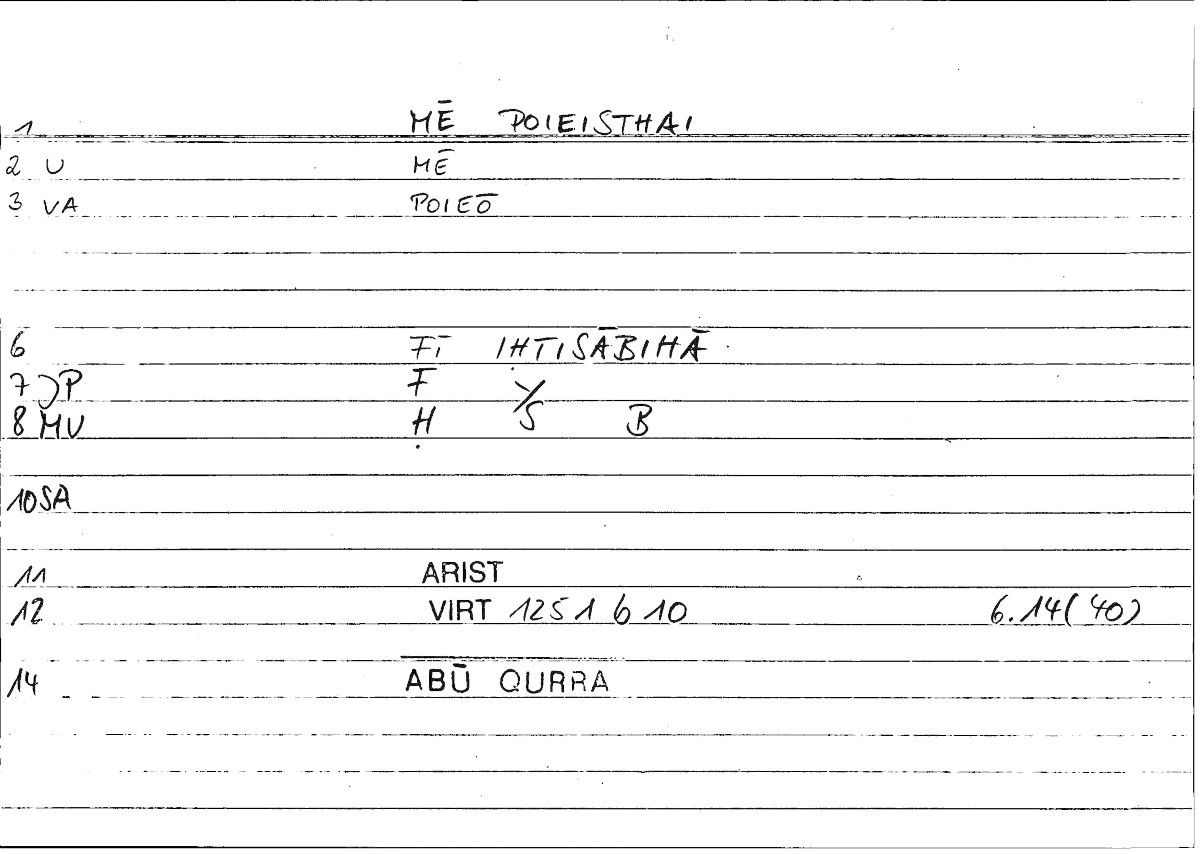 1 MĒ POIEISTHAI
2 U MĒ
3 VA POIEŌ
6 FĪ IḤTISĀBIHĀ
7 JP F Y/
8 MU Ḥ S B
10 SA
11 ARIST
12 VIRT 1251 b 10 6.14(40)
14 ABŪ QURRA